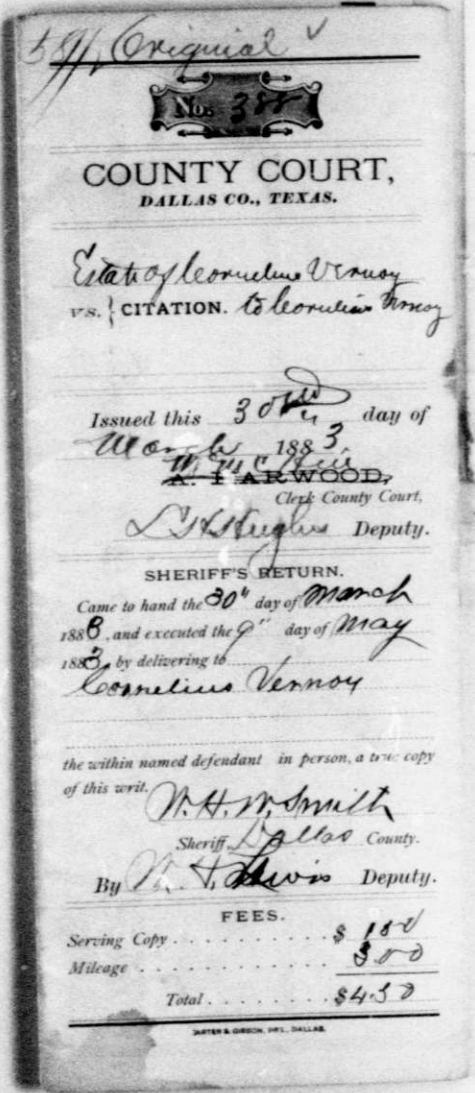 591, Original
No. 388
COUNTY COURT,
DALLAS CO., TEXAS.
Estate of Cornelius Vernoy
vs. } CITATION. to Cornelius Vernoy
Issued this 30 day of
March 1883.
A. HARWOOD,
Clerk County Court,
Hughes Deputy.
SHERIFF'S RETURN.
Came to hand the 30" day of March
1883, and executed the 9" day of May
1883, by delivering to
Cornelius Vernoy
the within named defendant in person, a true copy
of this writ.
W. H. W. Smith
Sheriff, Dallas County.
By Lewis Deputy.
FEES.
Serving Copy $
Mileage 300
Total $4.50